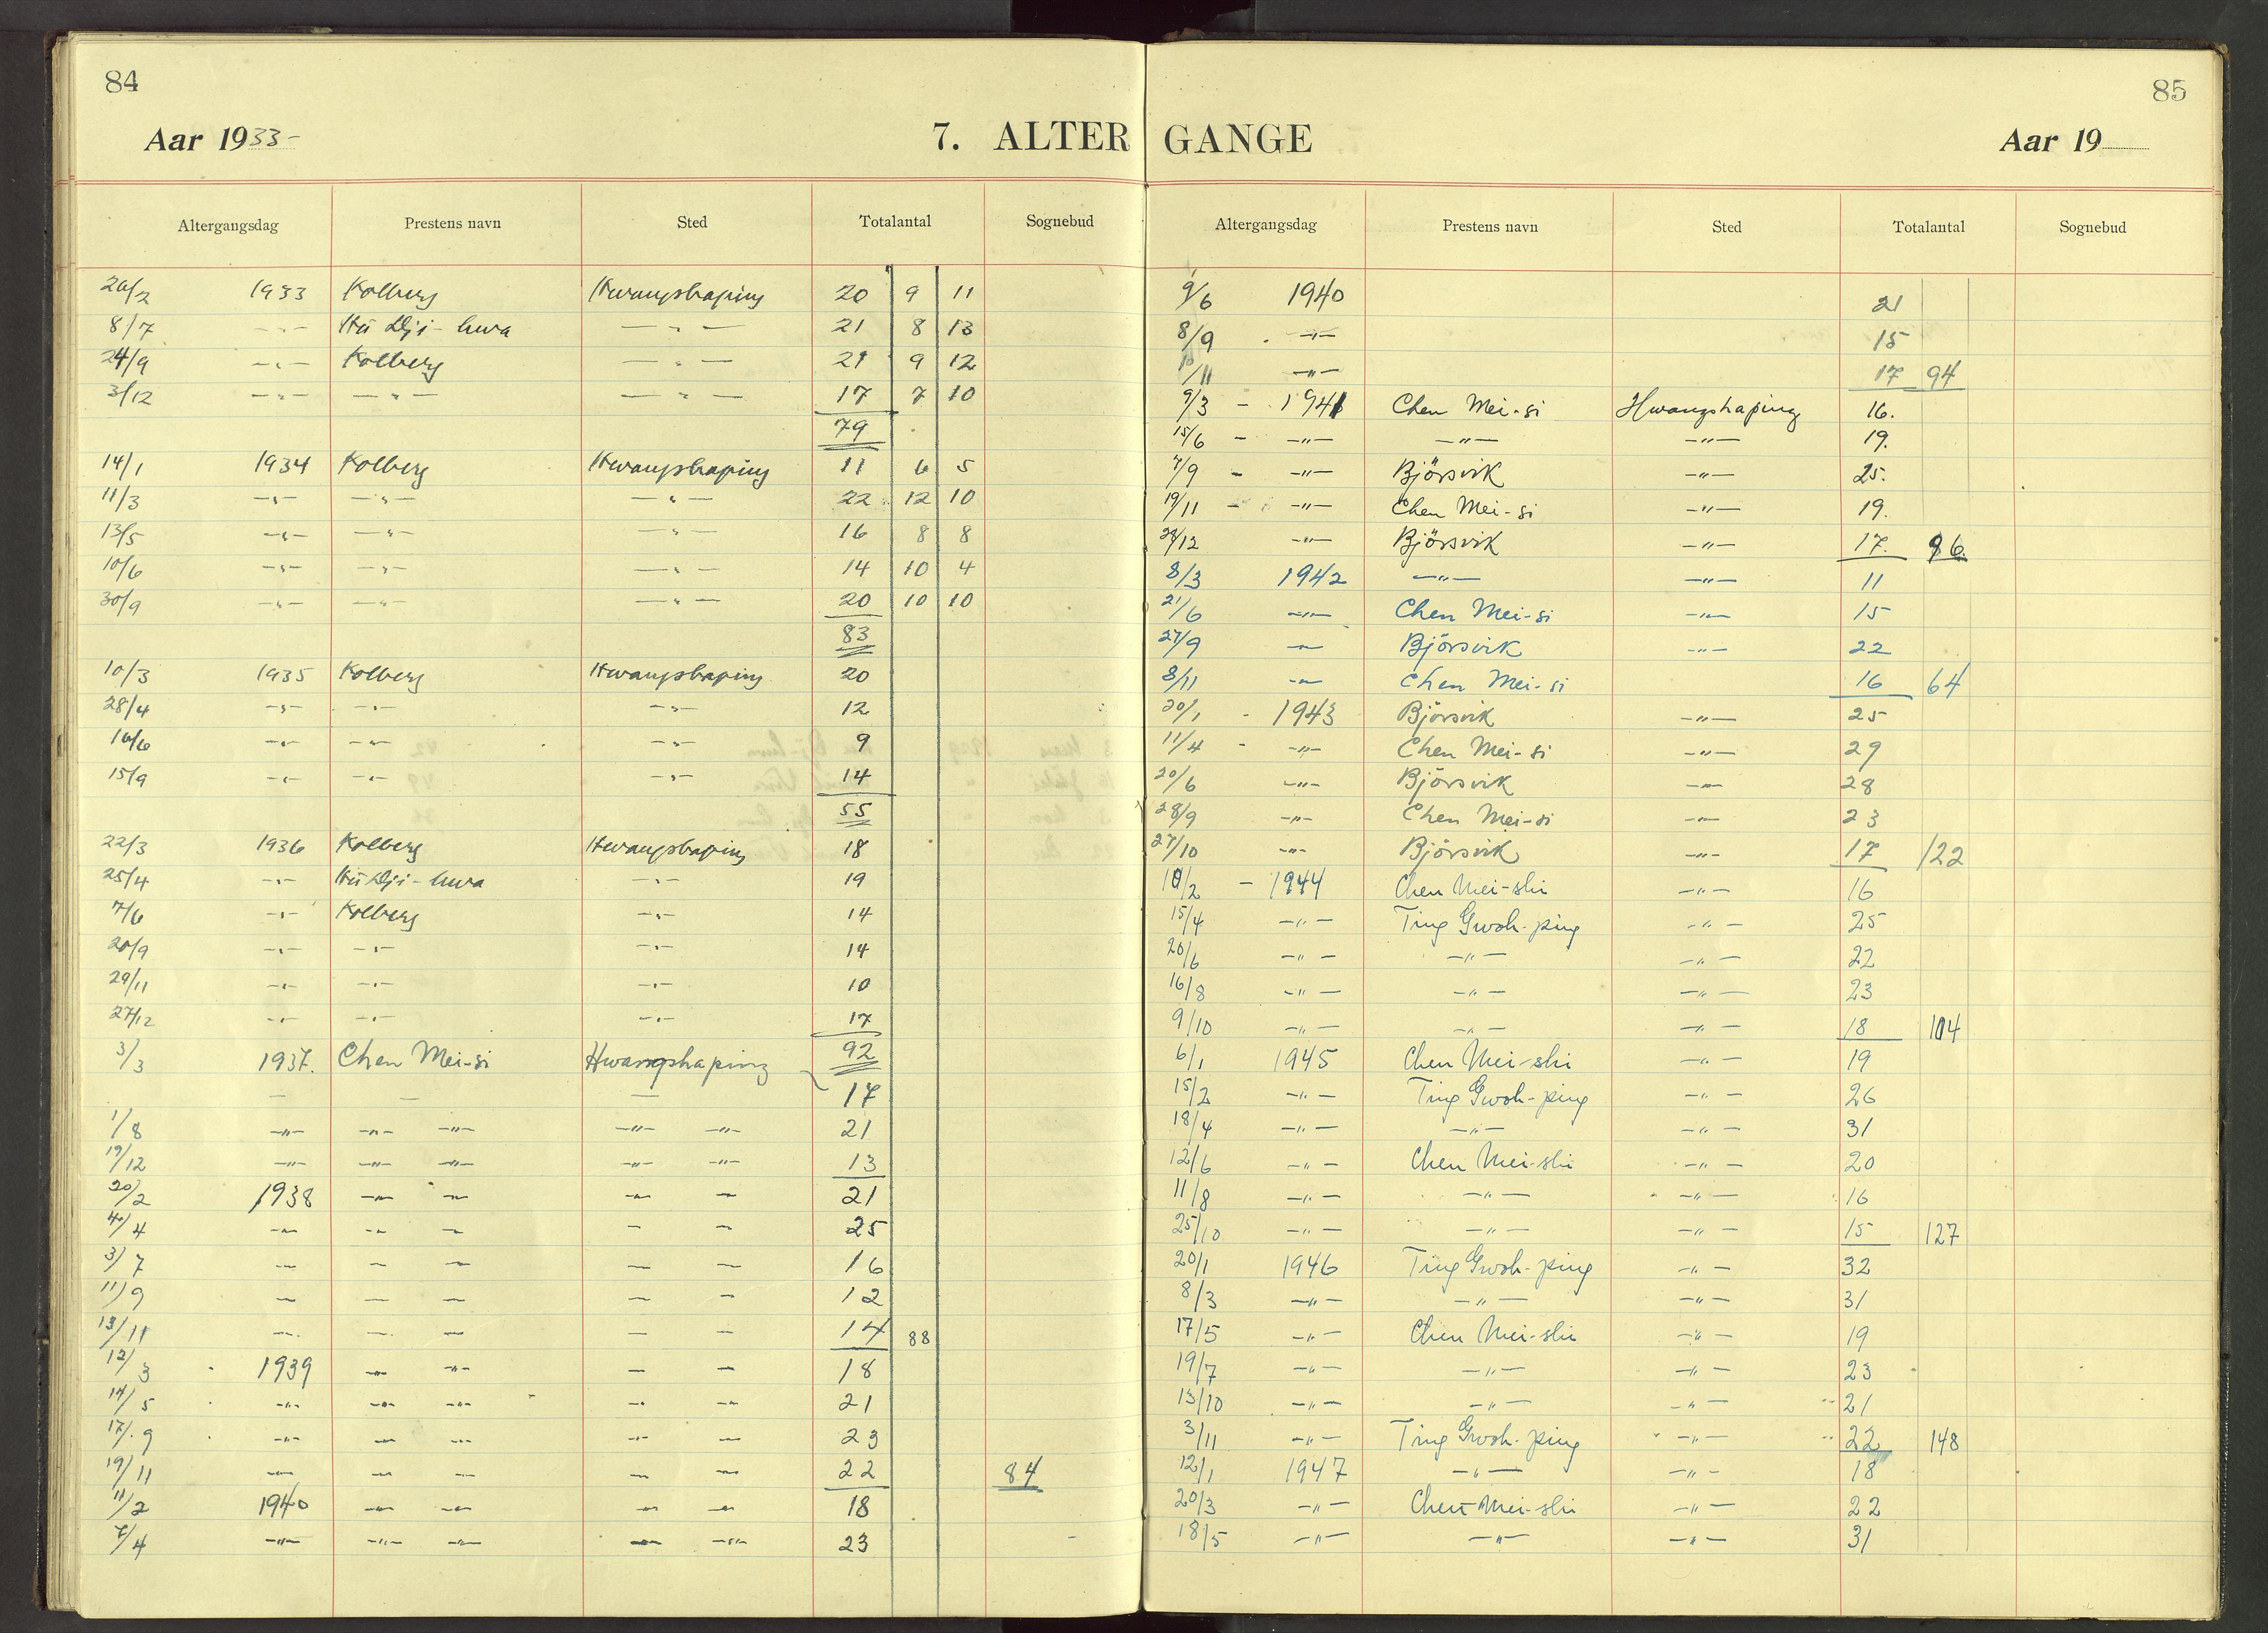 84
Aar 1933-
7. ALTER
Altergangsdag Prestens navn Sted Totalantal Sognebud
26/2 1933 Kolberg Hwangshaping 20 9 11
8/7 -"- Hü Dji-hwa -"- 21 8 13
24/9 -"- Kolberg -"- 21 9 12
3/12 -"- -"- -"- 17 7 10
79
14/1 1934 Kolberg Hwangshaping 11 6 5
11/3 -"- -"- -"- 22 12 10
13/5 -"- -"- -"- 16 8 8
10/6 -"- -"- -"- 14 10 4
30/9 -"- -"- -"- 20 10 10
83
10/3 1935 Kolberg Hwangshaping 20
28/4 -"- -"- -"- 12
16/6 -"- -"- -"- 9
15/9 -"- -"- -"- 14
55
22/3 1936 Kolberg Hwangshaping 18
25/4 -"- Hü Dji-hwa -"- 19
7/6 -"- Kolberg -"- 14
20/9 -"- -"- -"- 14
29/11 -"- -"- -"- 10
27/12 -"- -"- -"- 17
92
3/3 1937. Chen Mei-si Hwangshaping
— — — 17
1/8 -"- -"- -"- -"- -"- 21
19/12 -"- -"- -"- -"- -"- 13
20/2 1938 -"- -"- -"- -"- 21
4/4 -"- -"- -"- - - 25
3/7 - - - - - 16
11/9 - - - - - 12
13/11 - - - - - 14 88
12/3 1939 -"- -"- - - 18
14/5 -"- -"- -"- - -"- 21
17/9 -"- -"- -"- -"- - 23
19/11 -"- -"- -"- - -"- 22 84
11/2 1940 -"- -"- -"- -"- 18
7/4 -"- -"- -"- -"- -"- 23
85
GANGE
Aar 19
Altergangsdag Prestens navn Sted Totalantal Sognebud
9/6 1940 21
8/9 -"- 15
10/11 -"- 17 94
9/3 - 1941 Chen Mei-si Hwangshaping 16.
15/6 - -"- -"- -"- 19.
7/9 - -"- Björsvik -"- 25.
19/11 - -"- Chen Mei-si -"- 19.
28/12 -"- Björsvik -"- 17. 96.
8/3 1942 -"- -"- 11
21/6 -"- Chen Mei-si -"- 15
27/9 -"- Björsvik -"- 22
8/11 -"- Chen Mei-si 16 64
20/1 - 1943 Björsvik -"- 25
11/4 - -"- Chen Mei-si -"- 29
20/6 -"- Björsvik -"- 28
28/9 -"- Chen Mei-si -"- 23
27/10 -"- Björsvik -"- 17 122
10/2 - 1944 Chen Mei-shi -"- 16
15/4 -"- Ting Gwoh-ping -"- 25
20/6 -"- -"- -"- 22
16/8 -"- -"- -"- 23
9/10 -"- -"- -"- 18 104
6/1 1945 Chen Mei-shi -"- 19
15/2 -"- Ting Gwoh-ping -"- 26
18/4 -"- -"- -"- 31
12/6 -"- Chen Mei-shi -"- 20
11/8 -"- -"- -"- 16
25/10 -"- -"- -"- 15 127
20/1 1946 Ting Gwoh-ping -"- 32
8/3 -"- -"- -"- 31
17/5 -"- Chen Mei-shi -"- 19
19/7 -"- -"- -"- 23
13/10 -"- -"- -"- 21
3/11 -"- Ting Gwoh-ping -"- 22 148
12/1 1947 -"- -"- 18
20/3 -"- Chen Mei-shi -"- 22
18/5 -"- -"- -"- 31